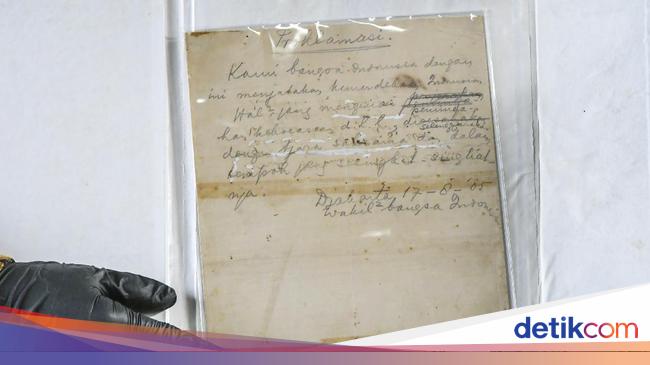 Proklamasi.
Kami bangsa Indonesia dengan
ini menjatakan kemerdekaan Indonesia
Hal² jang mengenai
d.l.l.,
dengan tjara saksama dan dalam
tempoh jang sesingkat-singkat
nja.
Djakarta 17-8-'05
Wakil² bangsa Indon
detikcom